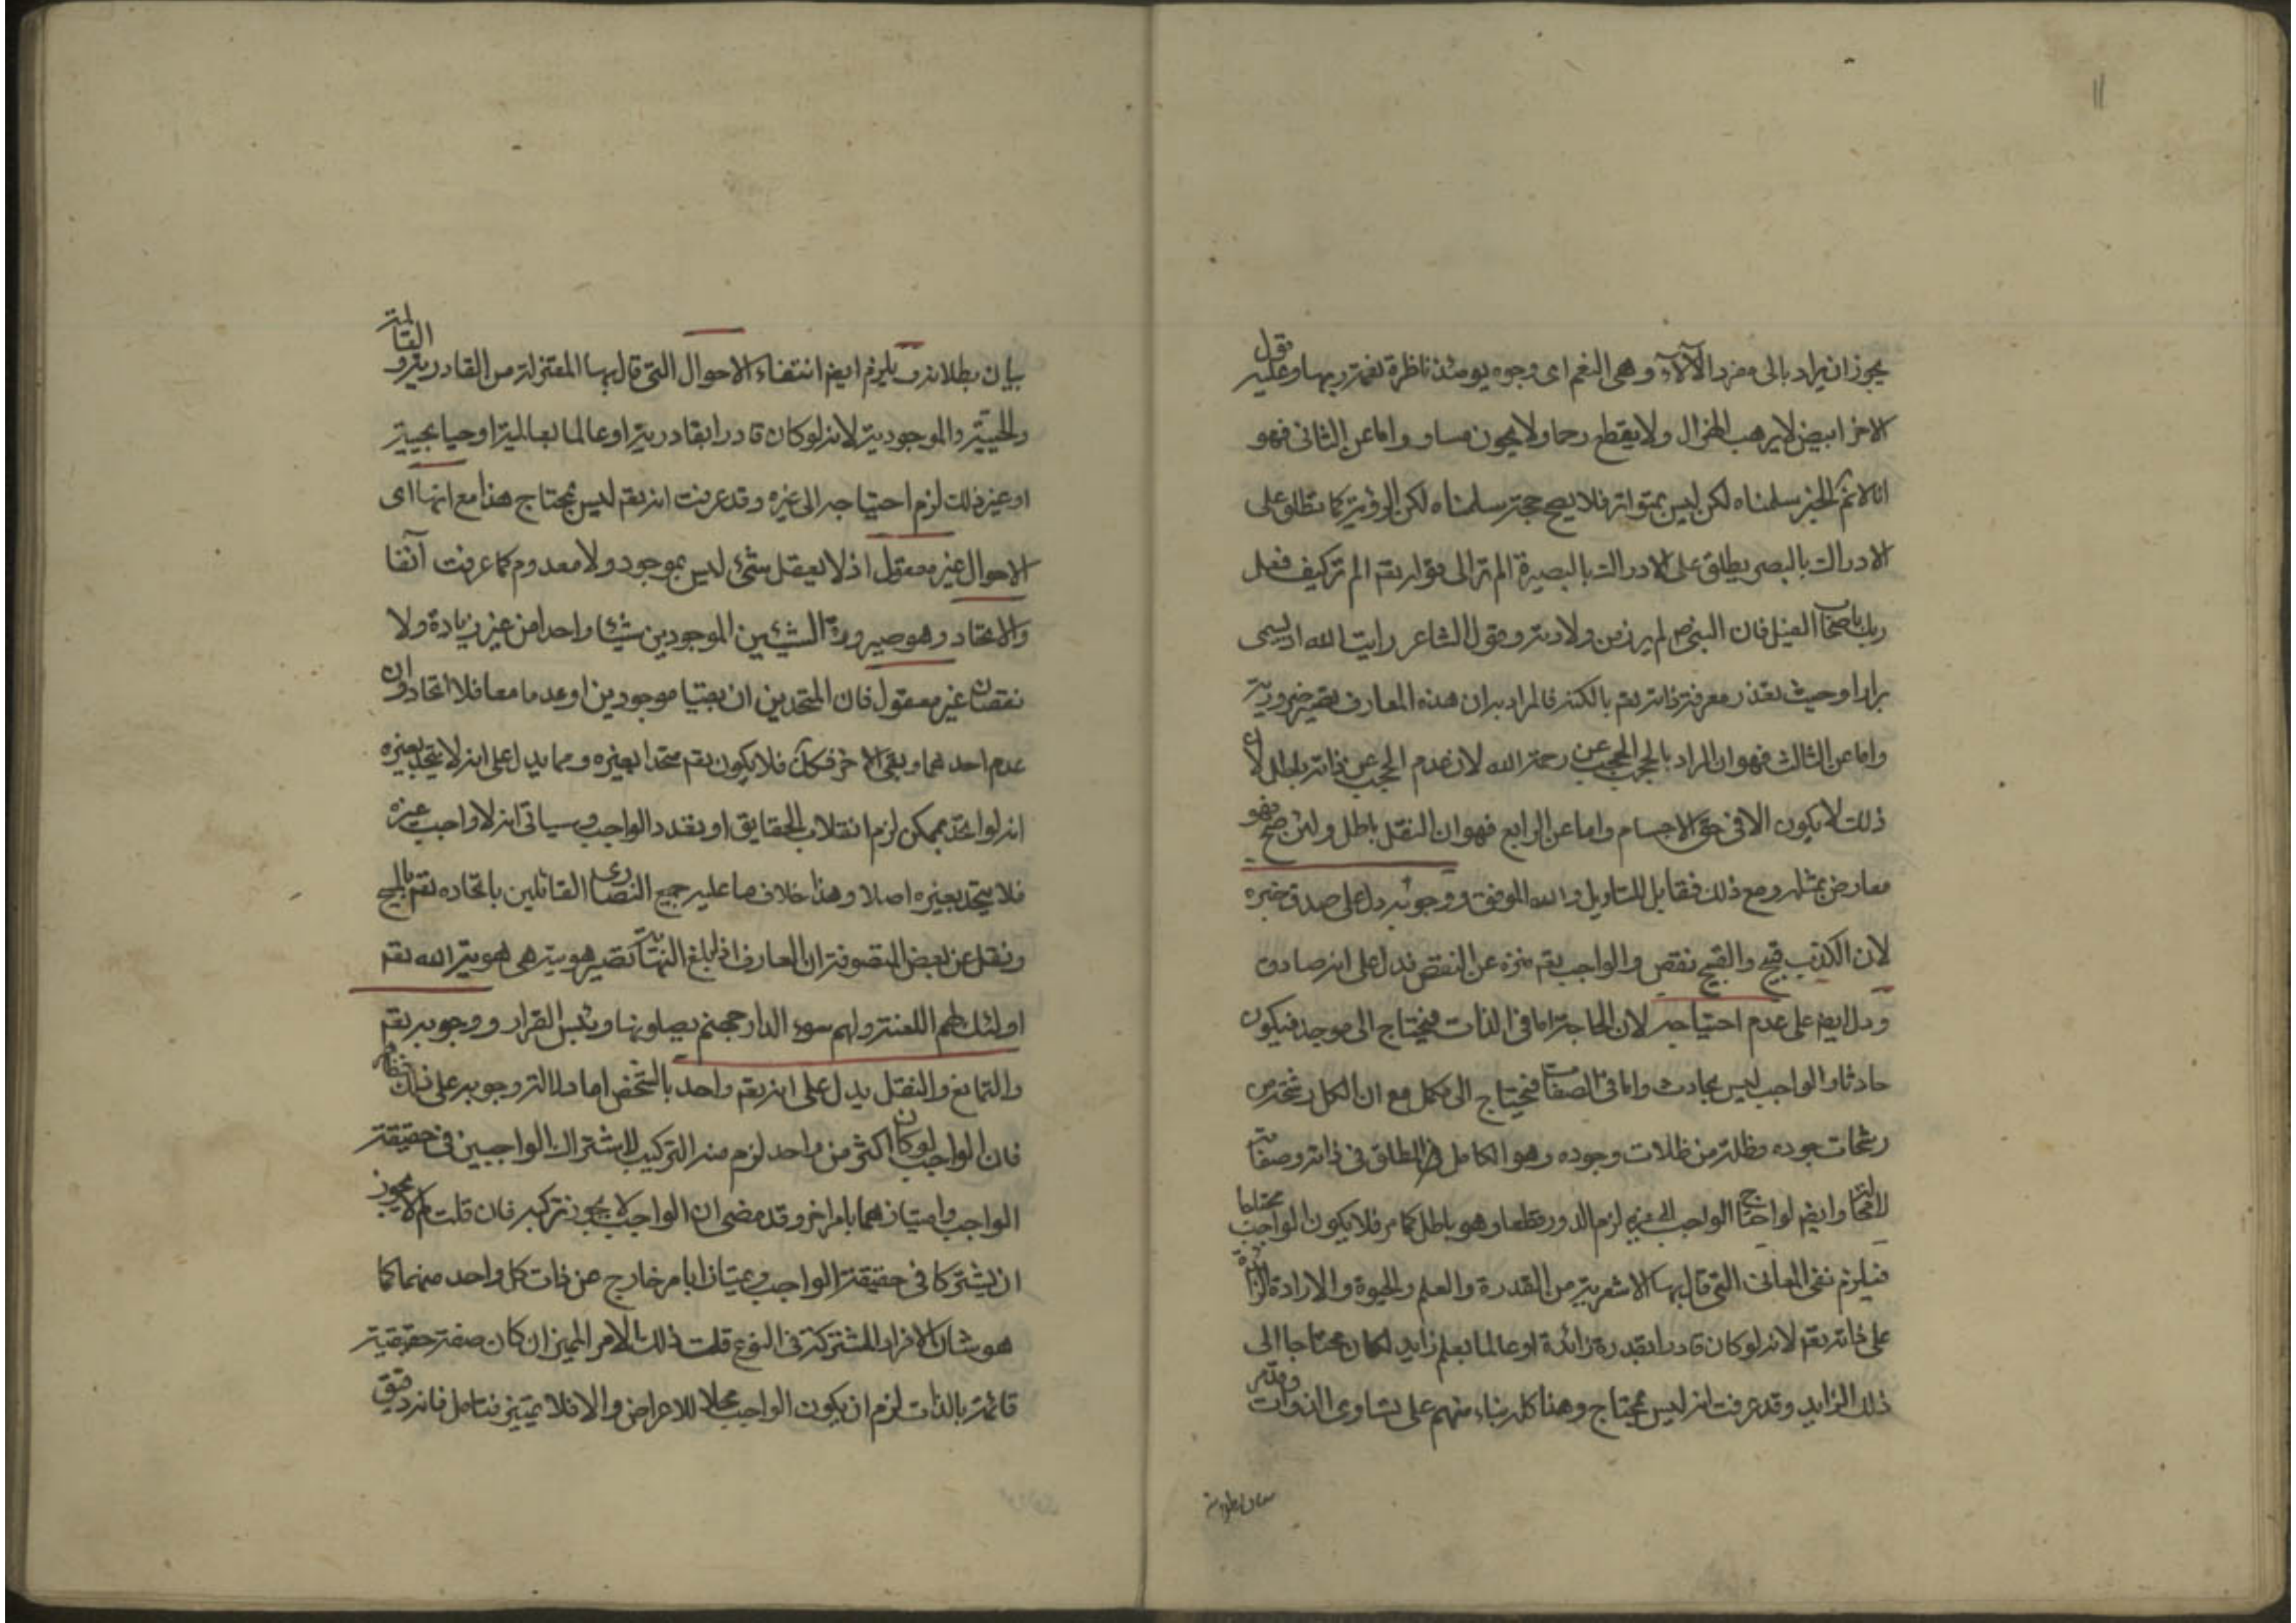 11
يجوز ان يراد بالى مفرد الآلاء وهى النعم اى وجوه يومئذ ناظرة نعمة ربها وعليه قول
الاخر ابيض لا يرهب الهزال ولا يقطع رحما ولا يخون واما عن الثانى فهو
انا لانم الخبر سلمناه لكن ليس بمتواتر فلا يصح حجة سلمناه لكن الرؤية كما تطلق على
الادراك بالبصر يطلق على الادراك بالبصيرة الم تر الى قوله تقم الم تر كيف فعل
ربك باصحاب الفيل فان النبى ص لم ير زمن ولادته وقول الشاعر رايت الله اذ يسمى
براوحيث تعذر معرفة ذاته تقم بالكنه فالمراد به ان هذه المعارف تصير ضرورية
واما عن الثالث فهو ان المراد بالحجب الحجب عن رحمة الله لان عدم الحجب عن ذاته باطل لان
ذلك لا يكون الا فى حق الاجسام واما عن الرابع فهو ان النقل باطل ولئن صح فهو
معارض بمثله ومع ذلك فقابل للتاويل والله الموفق ووجوبه دل على صدق خبره
لان الكذب قبيح والقبيح نقص والواجب تقم منزه عن النقص فدل على انه صادق
ودل ايضم على عدم احتياجه لان الحاجة اما فى الذات فيحتاج الى موجد فيكون
حادثا والواجب ليس بحادث واما فى الصفات فيحتاج الى مكمل مع ان الكل رشحة من
رشحات جوده وظلة من ظلات وجوده وهو الكامل المطلق فى ذاته وصفاته
وايضم لو احتاج الواجب الى غيره لزم الدور قطعا وهو باطل كما مر فلا يكون الواجب محتاجا
فيلزم نفى المعانى التى قال بها الاشعرية من القدرة والعلم والحيوة والارادة الزائدة
على ذاته تقم لانه لو كان قادرا بقدرة زائدة او عالما بعلم زايد لكان محتاجا الى
ذلك الزايد وقد عرفت انه ليس بمحتاج وهذا كله بناء منهم على تساوى الذوات
بيان بطلانه
بيان بطلانه ويلزم ايضم انتفاء الاحوال التى قال بها المعتزلة من القادرية و العالمية
والحيية والموجودية لانه لو كان قادرا بقادرية او عالما بعالمية او حيا بحيية
او غير ذلك لزم احتياجه الى غيره وقد عرفت انه تقم ليس بمحتاج هذا مع انها اى
الاحوال غير معقول اذ لا يعقل شئ ليس بموجود ولا معدوم كما عرفت آنفا
والاتحاد وهو صيرورة الشيئين الموجودين شيئا واحدا من غير زيادة ولا
نقصان غير معقول فان المتحدين ان بقيا موجودين او عدما معا فلا اتحاد وان
عدم احدهما وبقى الاخر فكك فلا يكون تقم متحدا بغيره ومما يدل على انه لا يتحد بغيره
انه لو اتحد بممكن لزم انقلاب الحقايق او تعدد الواجب وسياتى انه لا واجب غيره
فلا يتحد بغيره اصلا وهذا خلاف ما عليه جميع النصارى القائلين باتحاده تقم بالمسيح
ونقل عن بعض المتصوفة ان العارف اذا بلغ النهاية تصير هويته هى هوية الله تقم
اولئك لهم اللعنة ولهم سوء الدار جهنم يصلونها وبئس القرار ووجوبه تقم
والتمانع والنقل يدل على انه تقم واحد بالشخص اما دلالة وجوبه على ذلك فظاهر
فان الواجب لو كان اكثر من واحد لزم منه التركيب لاشتراك الواجبين فى حقيقة
الواجب وامتيازهما بامر اخر وقد مضى ان الواجب لا يجوز تركبه فان قلت لم لا يجوز
ان يشتركا فى حقيقة الواجب ويمتازا بامر خارج عن ذات كل واحد منهما كما
هو شان الافراد المشتركة فى النوع قلت ذلك الامر المميز ان كان صفة حقيقية
قائمة بالذات لزم ان يكون الواجب محلا للاعراض والا فلا تمييز فتامل فانه دقيق